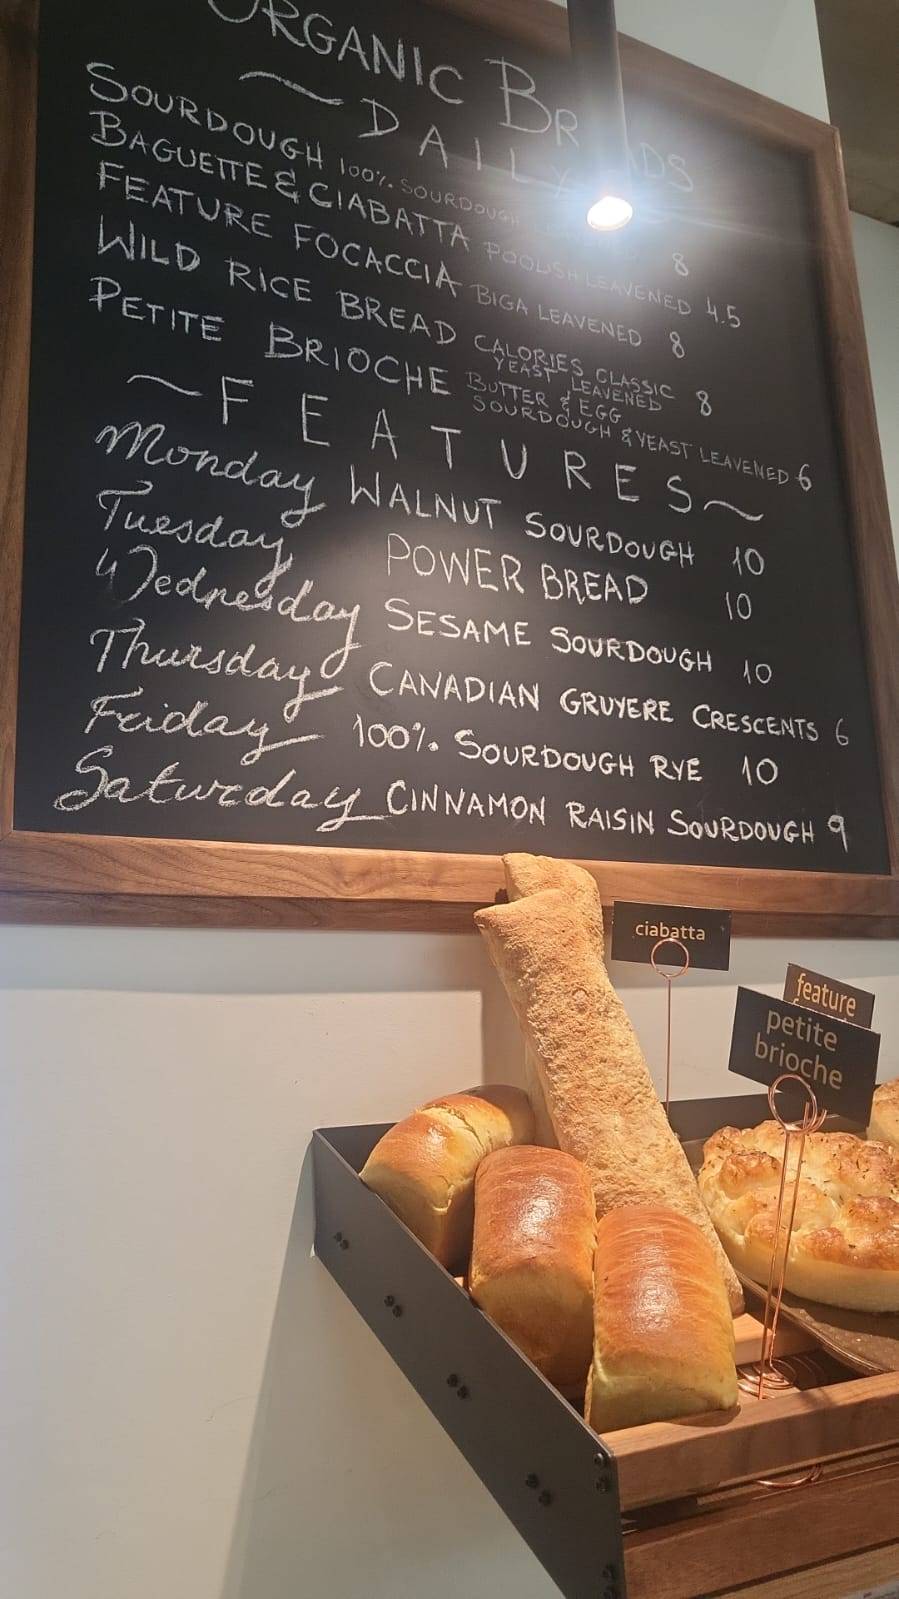 ORGANIC BREADS
~ DAILY
SOURDOUGH 100% SOURDOUGH 8
BAGUETTE & CIABATTA POOLISH LEAVENED 4.5
FEATURE FOCACCIA BIGA LEAVENED 8
WILD RICE BREAD CALORIES CLASSIC YEAST LEAVENED 8
PETITE BRIOCHE BUTTER & EGG SOURDOUGH & YEAST LEAVENED 6
~FEATURES~
Monday WALNUT SOURDOUGH 10
Tuesday POWER BREAD 10
Wednesday SESAME SOURDOUGH 10
Thursday CANADIAN GRUYERE CRESCENTS 6
Friday 100% SOURDOUGH RYE 10
Saturday CINNAMON RAISIN SOURDOUGH 9
ciabatta
feature
petite
brioche